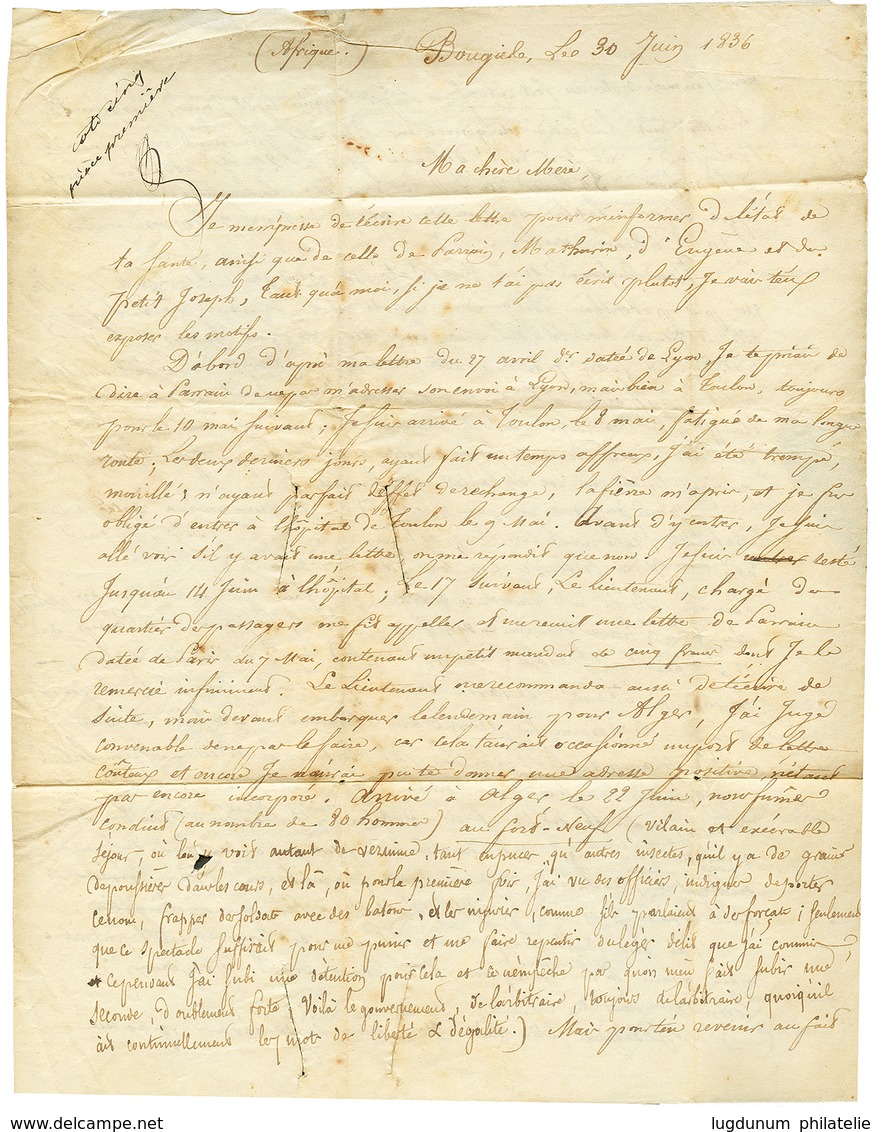 (Afrique.) Bougie, Le 30 Juin 1836
cote cinq
pièce première
Ma chère Merè,
Je m'empresse de t'écrire cette lettre pour m'informer d l'état de
ta santé, ainsi que de celle de Parrain, Mathurin, d'Eugène et du
petit Joseph, Tant qu'à moi, si je ne t'ai pas écris plutot, Je vais t'en
exposer les motifs.
D'abord d'après ma lettre du 27 avril der datée de Lyon, Je te priais de
dire à Parrain de ne pas m'adresser son envoi à Lyon, mais bien à Toulon, toujours
pour le 10 mai suivant; Je suis arrivé à Toulon, le 8 mai, fatigué de ma longue
route; Les deux derniers jours, ayant fait un temps affreux, j'ai été trempé,
mouillé; n'ayant pas fait d'effets de rechange, la fièvre m'a pris, et je fus
obligé d'entrer à l'hôpital de Toulon le 9 Mai. Avant d'y entrer, Je suis
allé voir s'il y avait une lettre on me répondit que non. Je suis resté
Jusqu'au 14 Juin à l'hôpital; Le 17 suivant, Le lieutenant, chargé du
quartier des passagers me fit appeller et me remit une lettre de Parrain
datée de Paris du 7 Mai, contenant un petit mandat de cinq francs dont Je le
remercie infiniment. Le Lieutenant me recommanda aussi de t'écrire de
suite, mais devant embarquer le lendemain pour Alger, J'ai Jugé
convenable de ne pas le faire, car cela t'aurait occasionné un port de lettre
coûteux et encore Je n'aurais pu te donner une adresse positive, n'étant
pas encore incorporé. Arrivé à Alger, le 22 Juin, nous fûmes
conduits (au nombre de 80 hommes) au fort-Neuf (vilain et exécrable
séjour, où l'on y voit autant de vermine, tant en puces qu'autres insectes, qu'il y a de grains
de poussière dans les cours, et là, où pour la première fois, J'ai vu des officiers, indignes de porter
ce nom, frapper des soldats avec des batons, et les injurier, comme s'ils parlaient à des forçats; seulement
que ce spectacle suffirait pour me punir et me faire repentir du léger délit que j'ai commis
cependant J'ai subi une détention pour cela et ce n'empêche pas qu'on m'en fait subir une
seconde, doublement forte voilà le gouvernement, de l'arbitraire, toujours de l'arbitraire, quoiqu'il
ait continuellement les mots de liberté & d'égalité.) Mais pour t'en revenir au fait
www.delcampe.net
lugdunum philatelie